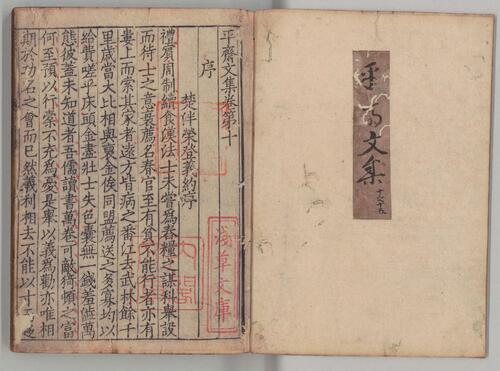 平齋文集
十之十五
平齋文集卷第十
序
楚伴榮登義約序
禮賓周制續食漢法士未嘗爲舂糧之謀科舉設
而待士之意衰薦名春官至有貧不能行者亦有
婁上而索其家者遠方皆病之番江去武林餘千
里歲當大比相與裒金俟同盟薦送之多寡均以
給費嗟乎床頭金盡壯士失色囊無一錢羞澁萬
態彼蓋未知道者吾儒讀書萬卷可敵猗頓之富
何至預以行橐不充爲憂是舉以義爲勸亦唯相
期於功名之會而已然義利相去不能以寸
淺草文庫